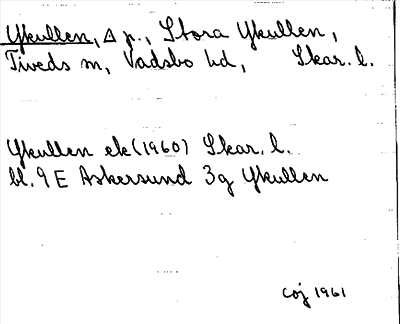 Ykullen, Δ p., Stora Ykullen,
Tiveds sn, Vadsbo hd, Skar. l.
Ykullen ek (1960) Skar. l.
bl. 9 E Askersund 3g Ykullen
Coj 1961